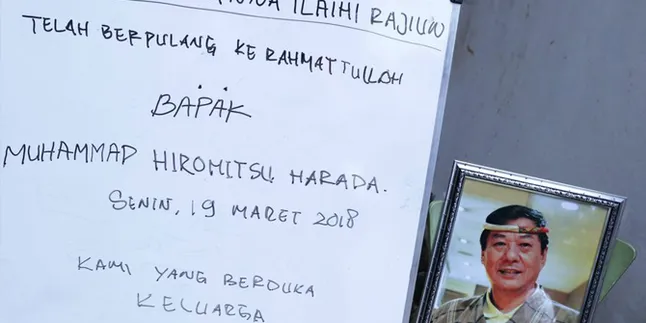 ILAIHI RAJIUN
TELAH BERPULANG KE RAHMATTULLAH
BAPAK
MUHAMMAD HIROMITSU HARADA.
SENIN, 19 MARET 2018
KAMI YANG BERDUKA
KELUARGA